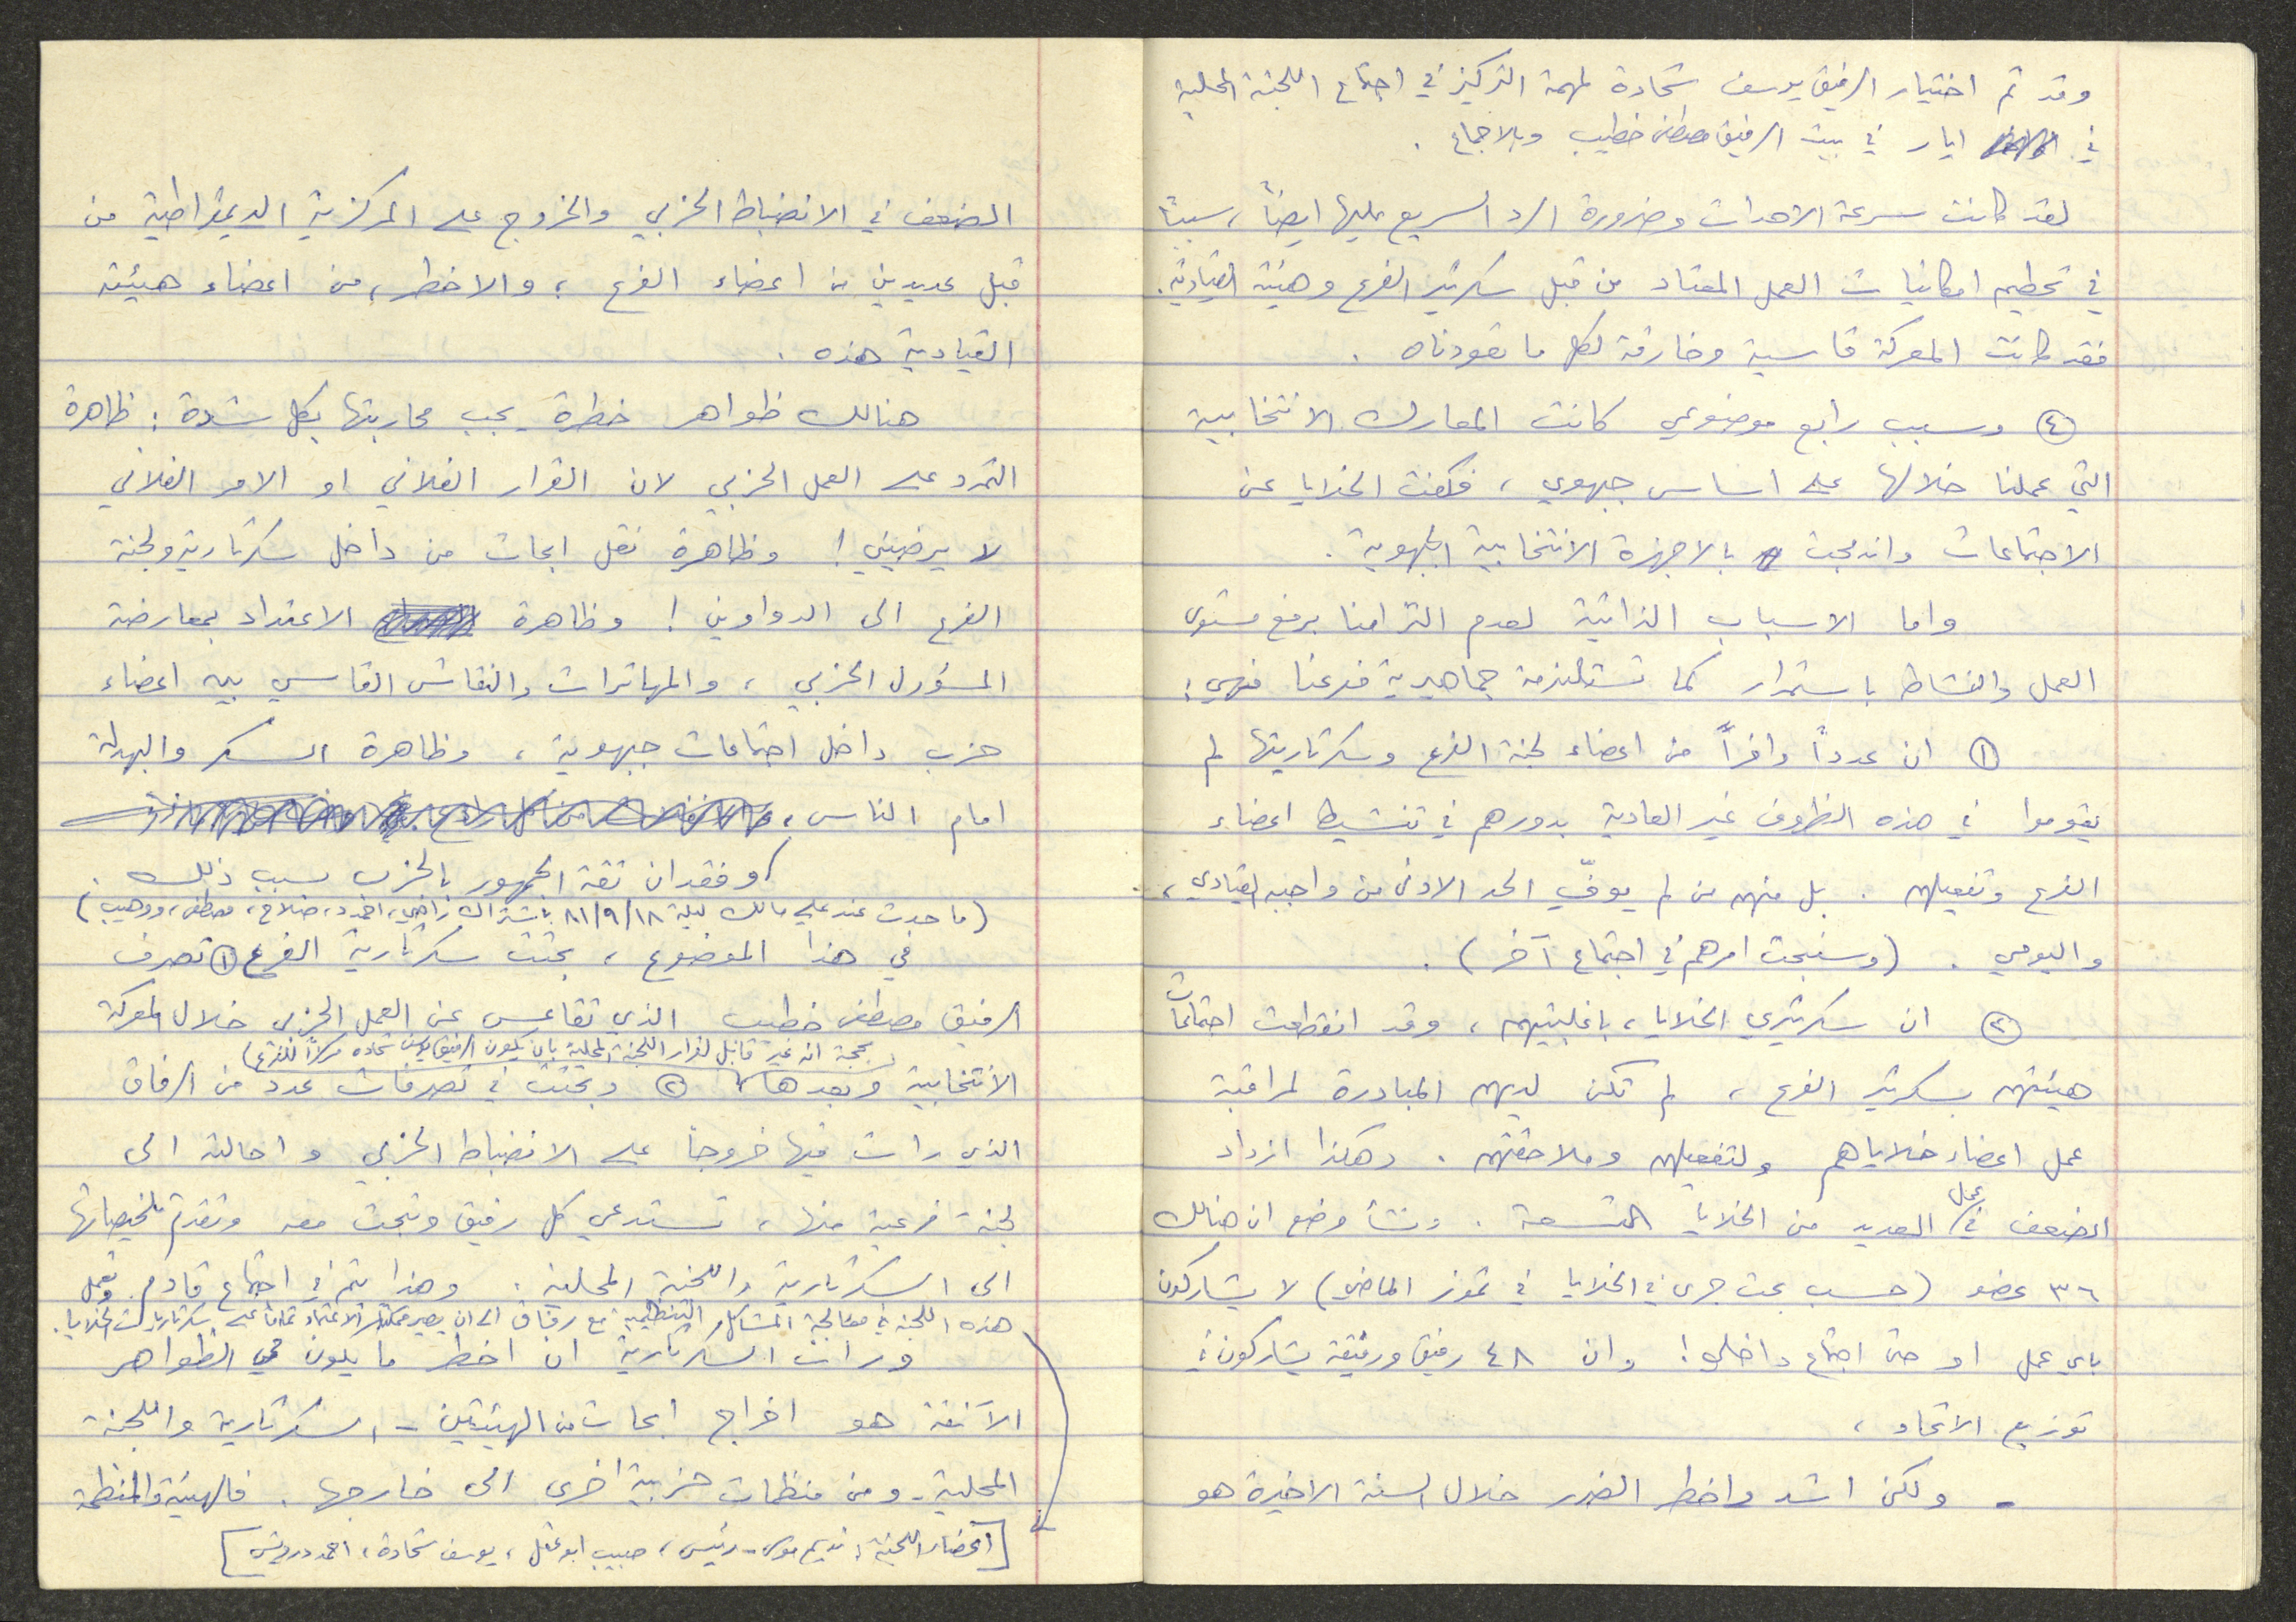 وقد تم اختيار الرفيق يوسف شحادة لمهمة التركيز في اجتماع اللجنة المحلية
في ايار في بيت الرفيق مصطفى خطيب وبالاجماع .
لقد كانت سرعة الاحداث وضرورة الرد السريع عليها ايضاً، سبباً
في تحطيم امكانيات العمل المعتاد من قبل سكرتير الفرع وهيئة القيادية.
فقد كانت المعركة قاسية وخارقة لكل ما تعودناه .
④ وسبب رابع موضوعي كانت المعارك الانتخابية
التي عملنا خلالها على اساس جبهوي ، فكفت الخلايا عن
الاجتماعات واندمجت بالاجهزة الانتخابية الجبهوية .
واما الاسباب الذاتية لعدم التزامنا برفع مستوى
العمل والنشاط باستمرار كما تستلزمه جماهيرية فرعنا فهي :
① ان عدداً وافراً من اعضاء لجنة الفرع وسكرتاريتها لم
يقوموا في هذه الظروف غير العادية بدورهم في تنشيط اعضاء
الفرع وتفعيلهم . بل منهم من لم يوفّ الحد الادنى من واجبه القيادي ،
واليومي . (وسنبحث امرهم في اجتماع آخر) .
② ان سكرتيري الخلايا ، باغلبيتهم ، وقد انقطعت اجتماعات
هيئتهم بسكرتير الفرع ، لم تكن لديهم المبادرة لمراقبة
عمل اعضاء خلاياهم ولتفعيلهم وملاحقتهم . وهكذا ازداد
الضعف في عمل العديد من الخلايا التسعة . ونشأ وضع ان هنالك
٣٦ عضو (حسب بحث جرى في الخلايا في تموز الماضي) لا يشاركون
باي عمل او حتى اجتماع داخلي ! وان ٤٨ رفيق ورفيقة يشاركون في
توزيع الاتحاد ،
- ولكن اشد واخطر الضرر خلال السنة الاخيرة هو
الضعف في الانضباط الحزبي والخروج على المركزية الديمقراطية من
قبل عديدين من اعضاء الفرع ، والاخطر ، من اعضاء هيئته
القيادية هذه .
هنالك ظواهر خطرة يجب محاربتها بكل شدة : ظاهرة
التمرد على العمل الحزبي لان القرار الفلاني او الامر الفلاني
لا يرضيني ! وظاهرة نقل ابحاث من داخل سكرتارية ولجنة
الفرع الى الدواوين ! وظاهرة الاعتداد بمعارضة
المسؤول الحزبي ، والمهاترات والنقاش القاسي بين اعضاء
حزب داخل اجتماعات جبهوية ، وظاهرة السكر والبهدلة
امام الناس ،
وفقدان ثقة الجمهور بالحزب بسبب ذلك .
(ما حدث عند علي مالك ليلة ٨١/٩/١٨ باشتراك راضي، احمد د، صلاح، مصطفى، ووهيب)
في هذا الموضوع ، بحثت سكرتارية الفرع ① تصرف
الرفيق مصطفى خطيب الذي تقاعس عن العمل الحزبي خلال المعركة
(بحجة انه غير قابل لقرار اللجنة المحلية بان يكون الرفيق يوسف شحاده مركزاً للفرع)
الانتخابية وبعدها ② وبحثت في تصرفات عدد من الرفاق
الذي رات فيها خروجاً على الانضباط الحزبي واحالته الى
لجنة فرعية منها ، تستدعي كل رفيق وتبحث معه وتقدم تلخيصاتها
الى السكرتارية واللجنة المحلية . وهذا يتم في اجتماع قادم. وتعمل
هذه اللجنة في معالجة المشاكل التنظيمية مع رفاق الى ان يصير ممكناً الاعتماد تماماً على سكرتاريات الخلايا.
ورات السكرتارية ان اخطر ما يكون في الظواهر
الآنفة هو اخراج ابحاث من الهيئتين - السكرتارية واللجنة
المحلية - ومن منظمات حزبية اخرى الى خارجها . فالهيئة والمنظمة
[اعضاء اللجنة : نديم موسى - رئيس ، حبيب ابو عقل ، يوسف شحادة ، احمد درويش]